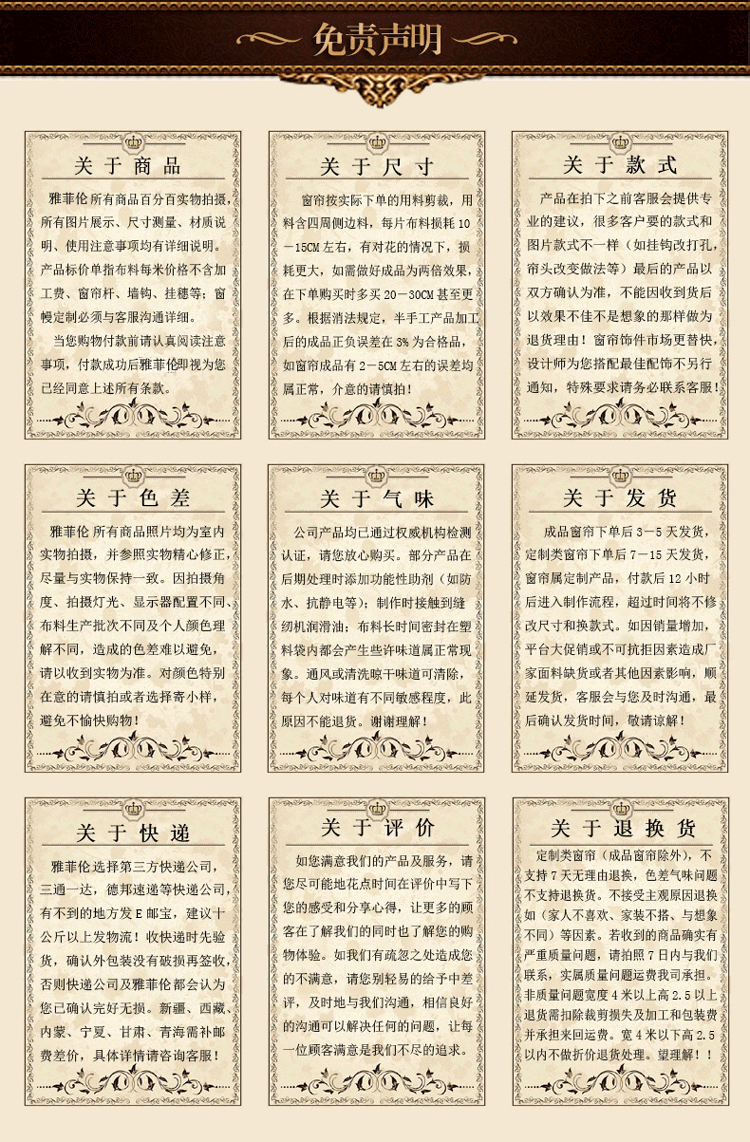 免责声明
关于商品
雅菲伦所有商品百分百实物拍摄，
所有图片展示、尺寸测量、材质说
明、使用注意事项均有详细说明。
产品标价单指布料每米价格不含加
工费、窗帘杆、墙钩、挂穗等；窗
幔定制必须与客服沟通详细。
当您购物付款前请认真阅读注意
事项，付款成功后雅菲伦即视为您
已经同意上述所有条款。
关于尺寸
窗帘按实际下单的用料剪裁，用
料含四周侧边料，每片布料损耗10
－15CM左右，有对花的情况下，损
耗更大，如需做好成品为两倍效果，
在下单购买时多买20－30CM甚至更
多。根据消法规定，半手工产品加工
后的成品正负误差在3%为合格品，
如窗帘成品有2－5CM左右的误差均
属正常，介意的请慎拍！
关于款式
产品在拍下之前客服会提供专
业的建议，很多客户要的款式和
图片款式不一样（如挂钩改打孔，
帘头改变做法等）最后的产品以
双方确认为准，不能因收到货后
以效果不佳不是想象的那样做为
退货理由！窗帘饰件市场更替快，
设计师为您搭配最佳配饰不另行
通知，特殊要求请务必联系客服！
关于色差
雅菲伦所有商品照片均为室内
实物拍摄，并参照实物精心修正，
尽量与实物保持一致。因拍摄角
度、拍摄灯光、显示器配置不同、
布料生产批次不同及个人颜色理
解不同，造成的色差难以避免，
请以收到实物为准。对颜色特别
在意的请慎拍或者选择寄小样，
避免不愉快购物！
关于气味
公司产品均已通过权威机构检测
认证，请您放心购买。部分产品在
后期处理时添加功能性助剂（如防
水、抗静电等）；制作时接触到缝
纫机润滑油；布料长时间密封在塑
料袋内都会产生些许味道属正常现
象。通风或清洗晾干味道可清除，
每个人对味道有不同敏感程度，此
原因不能退货。谢谢理解！
关于发货
成品窗帘下单后3－5天发货，
定制类窗帘下单后7－15天发货，
窗帘属定制产品，付款后12小时
后进入制作流程，超过时间将不修
改尺寸和换款式。如因销量增加，
平台大促销或不可抗拒因素造成厂
家面料缺货或者其他因素影响，顺
延发货，客服会与您及时沟通，最
后确认发货时间，敬请谅解！
关于快递
雅菲伦选择第三方快递公司，
三通一达，德邦速递等快递公司，
有不到的地方发E邮宝，建议十
公斤以上发物流！收快递时先验
货，确认外包装没有破损再签收，
否则快递公司及雅菲伦都会认为
您已确认完好无损。新疆、西藏、
内蒙、宁夏、甘肃、青海需补邮
费差价，具体详情请咨询客服！
关于评价
如您满意我们的产品及服务，请
您尽可能地花点时间在评价中写下
您的感受和分享心得，让更多的顾
客在了解我们的同时也了解您的购
物体验。如我们有疏忽之处造成您
的不满意，请您别轻易的给予中差
评，及时地与我们沟通，相信良好
的沟通可以解决任何的问题，让每
一位顾客满意是我们不尽的追求。
关于退换货
定制类窗帘（成品窗帘除外），不
支持7天无理由退换，色差气味问题
不支持退换货。不接受主观原因退换
如（家人不喜欢、家装不搭、与想象
不同）等因素。若收到的商品确实有
严重质量问题，请拍照7日内与我们
联系，实属质量问题运费我司承担。
非质量问题宽度4米以上高2.5以上
退货需扣除裁剪损失及加工和包装费
并承担来回运费。宽4米以下高2.5
以内不做折价退货处理。望理解！！